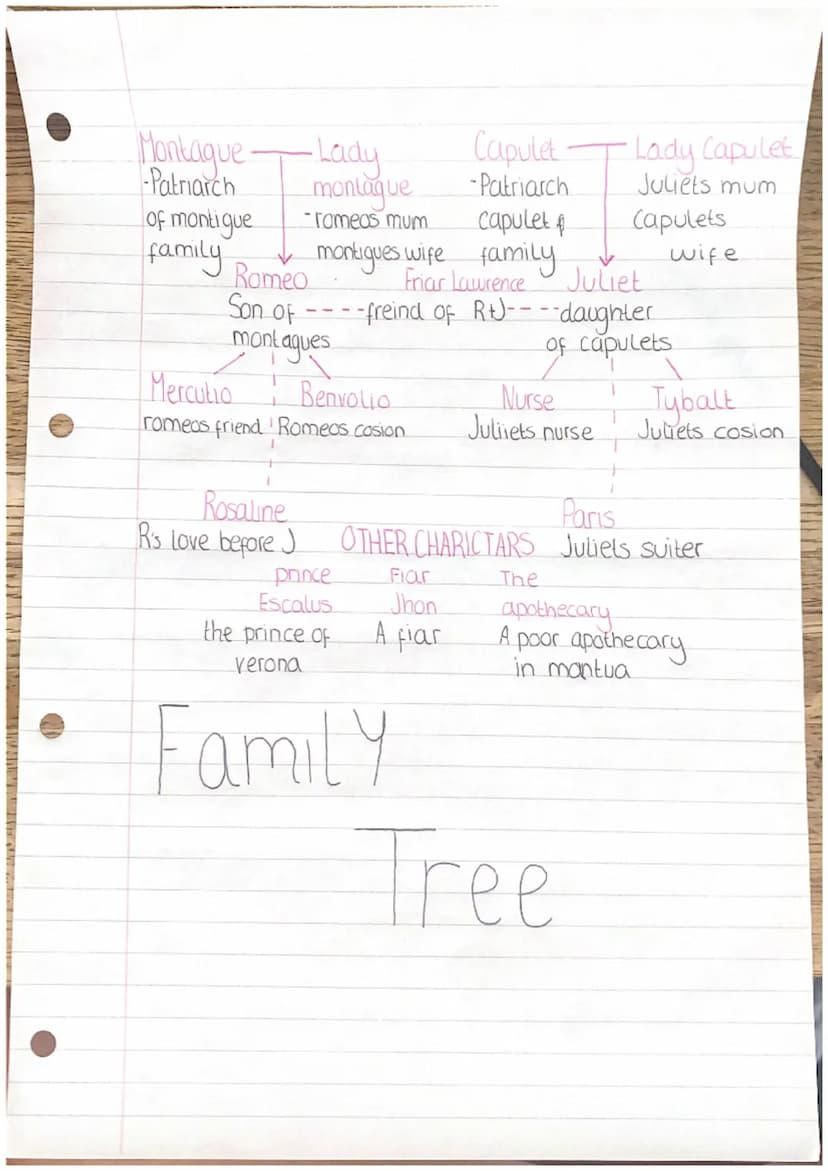 Montague Lady Capulet Lady Capulet
-Patriarch montague -Patriarch Juliets mum
of montigue -romeos mum capulet Capulets
family montigues wife family wife
Romeo Friar Lawrence Juliet
Son of ----freind of R+J----daughter
montagues of capulets
Mercutio Benvolio Nurse Tybalt
romeos friend Romeos cosion Juliiets nurse Juliets cosion
Rosaline Paris
R's love before J OTHER CHARICTARS Juliets suiter
prince Fiar The
Escalus Jhon apothecary
the prince of A fiar A poor apothecary
verona in mantua
Family
Tree